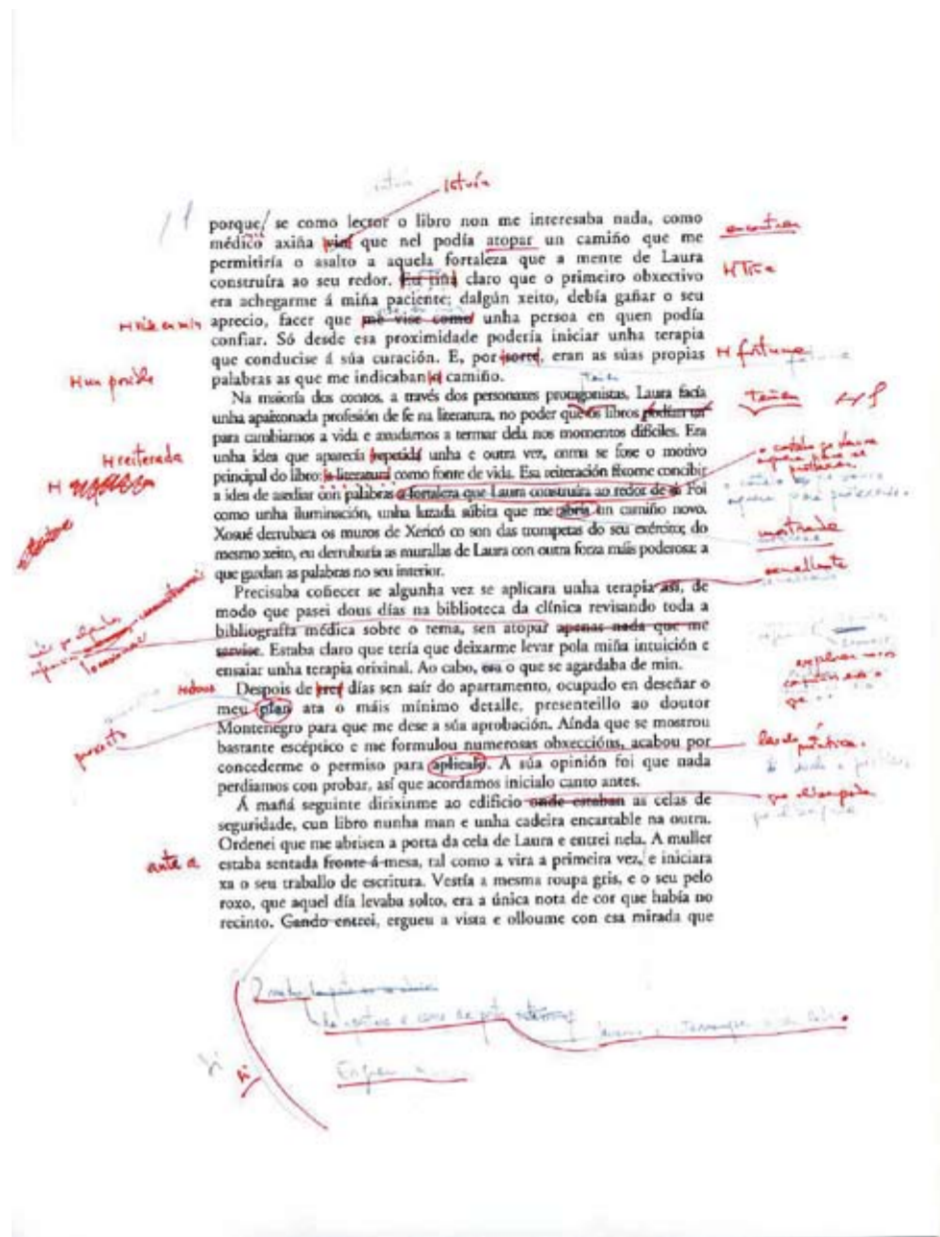 Intuín
porque, se como lector o libro non me interesaba nada, como
médico axiña vin que nel podía atopar un camiño que me
encontrar
permitiría o asalto a aquela fortaleza que a mente de Laura
construíra ao seu redor. Eu tiña claro que o primeiro obxectivo
H Tiña
era achegarme á miña paciente; dalgún xeito, debía gañar o seu
H vise en min
aprecio, facer que me vise como unha persoa en quen podía
confiar. Só desde esa proximidade podería iniciar unha terapia
que conducise á súa curación. E, por sorte, eran as súas propias
H fortuna
H un posible
palabras as que me indicaban o camiño.
Na maioría dos contos, a través dos personaxes protagonistas, Laura facía
unha apaixonada profesión de fe na literatura, no poder que os libros podían ter
teñen
para cambiarnos a vida e axudarnos a termar dela nos momentos difíciles. Era
H reiterada
unha idea que aparecía repetida unha e outra vez, coma se fose o motivo
principal do libro: a literatura como fonte de vida. Esa reiteración fíxome concibir
a idea de asediar con palabras a fortaleza que Laura construíra ao redor de si. Foi
como unha iluminación, unha luzada súbita que me abría un camiño novo.
mostrado
Xosué derrubara os muros de Xericó co son das trompetas do seu exército; do
mesmo xeito, eu derrubaría as murallas de Laura con outra forza máis poderosa: a
que gardan as palabras no seu interior.
semellante
Precisaba coñecer se algunha vez se aplicara unha terapia así, de
modo que pasei dous días na biblioteca da clínica revisando toda a
bibliografía médica sobre o tema, sen atopar apenas nada que me
servise. Estaba claro que tería que deixarme levar pola miña intuición e
ensaiar unha terapia orixinal. Ao cabo, era o que se agardaba de min.
H dous
Despois de tres días sen saír do apartamento, ocupado en deseñar o
meu plan ata o máis mínimo detalle, presenteillo ao doutor
proxecto
Montenegro para que me dese a súa aprobación. Aínda que se mostrou
bastante escéptico e me formulou numerosas obxeccións, acabou por
levalo á práctica.
concederme o permiso para aplicalo. A súa opinión foi que nada
perdiamos con probar, así que acordamos inicialo canto antes.
Á mañá seguinte dirixinme ao edificio onde estaban as celas de
seguridade, cun libro nunha man e unha cadeira encartable na outra.
Ordenei que me abrisen a porta da cela de Laura e entrei nela. A muller
ante a
estaba sentada fronte á mesa, tal como a vira a primeira vez, e iniciara
xa o seu traballo de escritura. Vestía a mesma roupa gris, e o seu pelo
roxo, que aquel día levaba solto, era a única nota de cor que había no
recinto. Cando entrei, ergueu a vista e olloume con esa mirada que